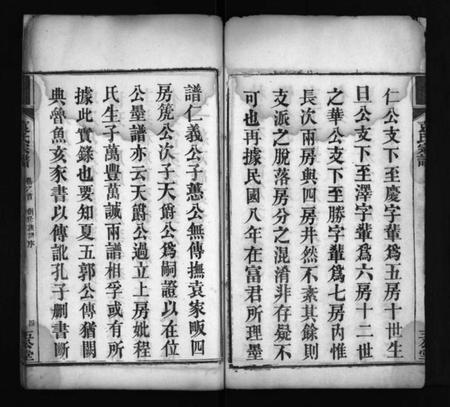 仁公支下至慶字輩爲五房十世生
旦公支下至澤字輩爲六房十二世
之華公支下至勝字輩爲七房內惟
長次兩房與四房井然不紊其餘則
支派之脫落房分之混淆非存疑不
可也再據民國八年在富君所理墨
譜仁義公子憑公無傳撫袁家畈四
房箎公次子天爵公爲嗣證以在位
公墨譜亦云天爵公過立上房妣程
氏生子萬豐萬誠兩譜相孚或有所
據此實錄也要知夏五郭公傳猶闕
典魯魚亥豕書以傳訛孔子刪書斷